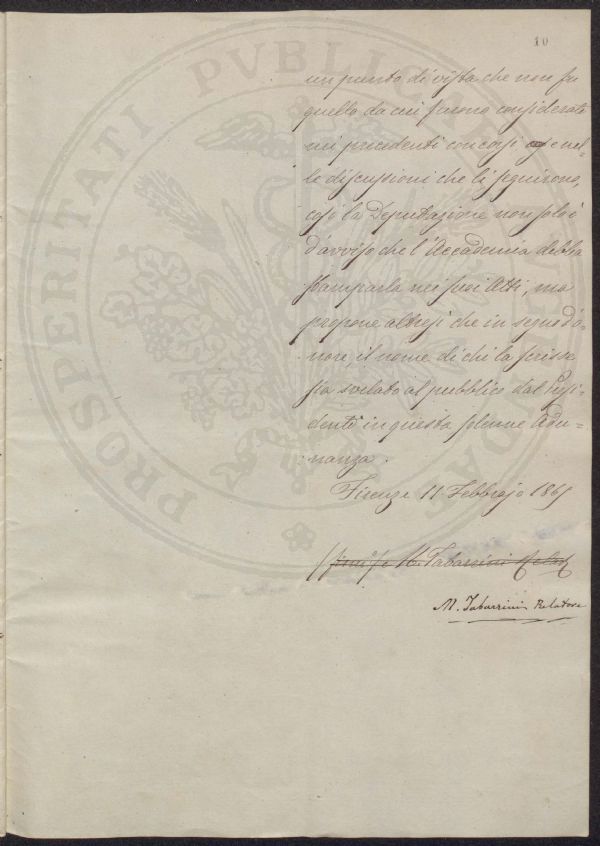 10
un punto di vista che non fu
quello da cui furono considerate
nei precedenti concorsi e nel-
le discussioni che li seguirono,
così la Deputazione non solo è
d'avviso che l'Accademia debba
stamparla nei suoi Atti, ma
propone altresì che in segno d'o-
nore, il nome di chi la scrisse
sia svelato al pubblico dal Presi-
dente in questa solenne Adu-
nanza.
Firenze 11 Febbrajo 186
M. Tabarrini
M. Tabarrini Relatore
PROSPERITATI PVBLICAE